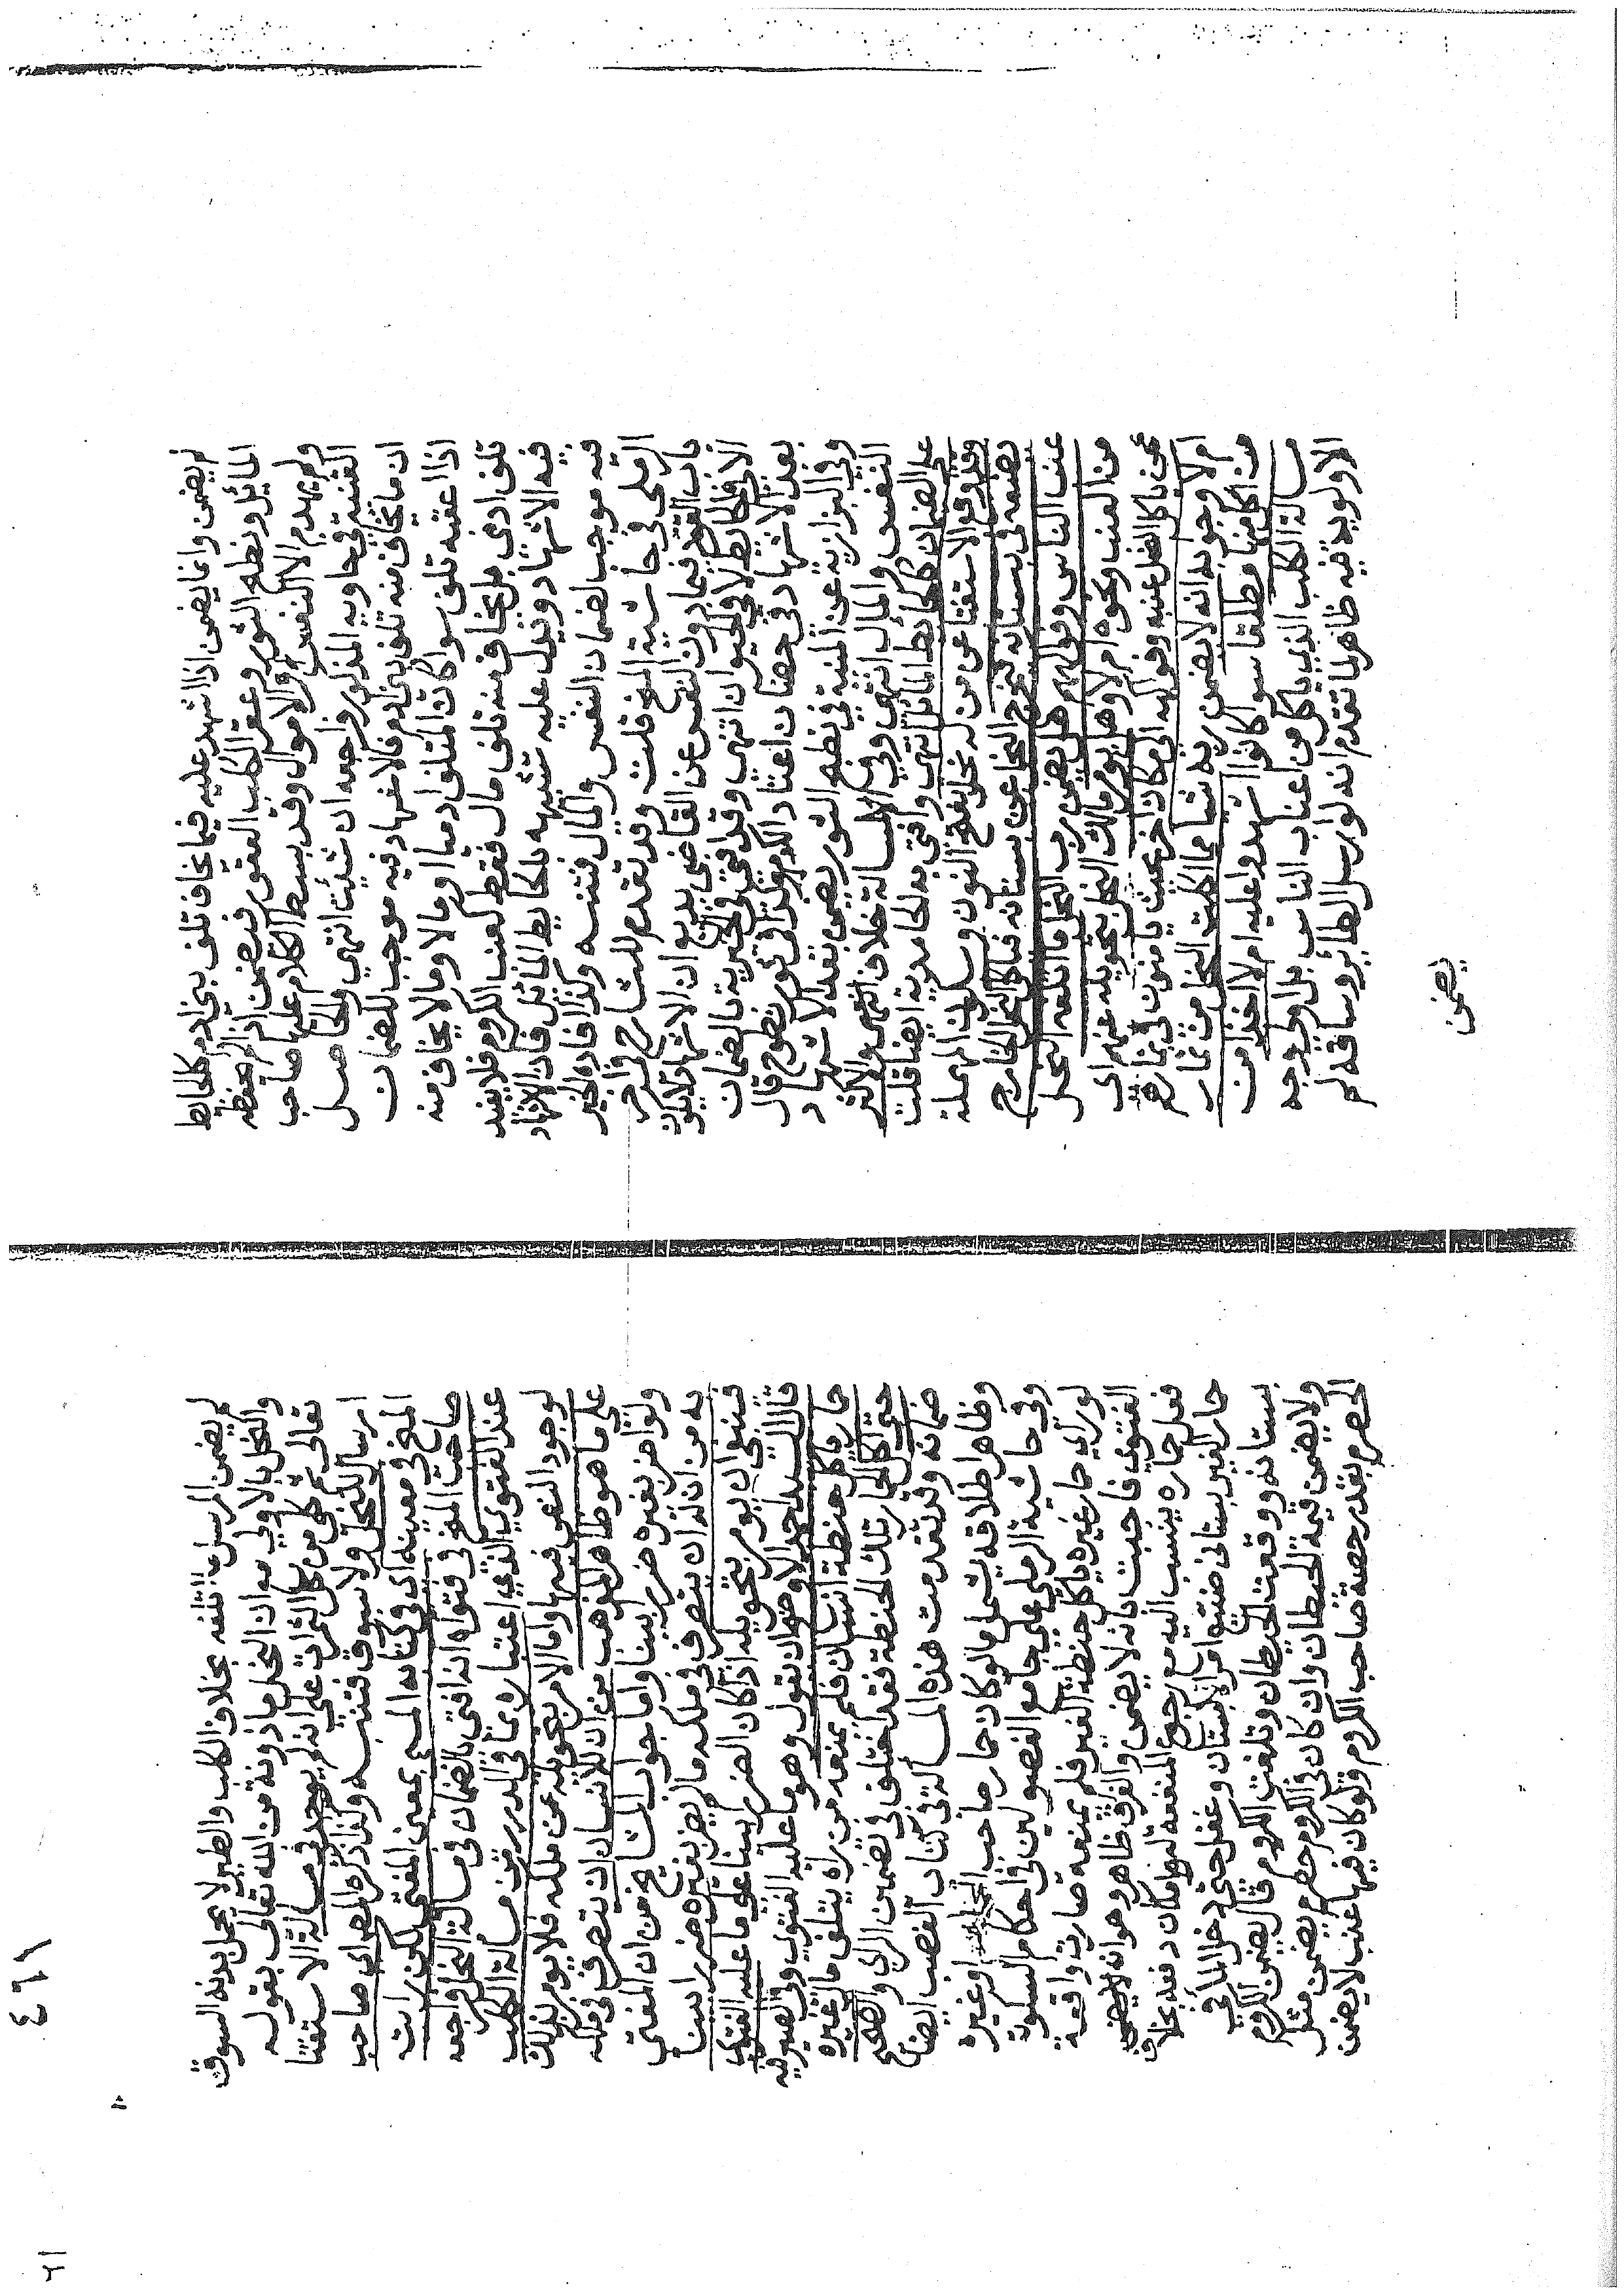 لم يضمن وانما يضمن اذا اشهد عليه فيما يخاف تلف بني ادم كالحايط
المائل ونطح الثور وعقر الكلب العقور فيضمن اذا لم يحفظه
ولم يهدم الا النفس والاموال وقد بسط الكلام عليها صاحب
القنية في حاويه المذكور فراجعه ان شئت انتهي والحاصل
ان ما يخاف منه تلف بني ادم فالاشهاد فيه موجب للضمان
اذا اعقبه تلف سوا كان المتلف ادميا او مالا وما لا يخاف منه
تلف ادمي بل يخاف منه تلف مال فقط كعنب الكروم فلا يفيد
فيه الاشهاد ويدل عليه تشبيهه بالحايط المائل فان الاشهاد
فيه موجب لضمان النفس والمال فتنبه وكذا افاده الخير
الرملي في حاشية المنح قلت وقد تقدم للشارح في اخر
باب القود فيما دون النفس عن القاضي بديع ان الاشهاد لا يكون
الا في الحايط لا في الحيوان انتهي وقد افتي في الخيرية بالضمان
بعد الاشهاد في حصان اعتاد الكدم وكذا في ثور نطوح قال
وفي البزازية عن المنية في نطح الثور يضمن بعد الاشهاد
النفس والمال انتهي وفي المسالة خلاف انتهي والاكثر
على الضمان كالحائط المائل انتهي وافتي به الحامدية ايضا قلت
وقد وقع الاستفتا عن من له نحل بفتح النون وسكون المهملة
يضعه في بستانه فيخرج النحل عن بستانه فياكل النحل الخارج
عنب الناس وفواكههم هل يضمن رب النحل ما اتلفه النحل
من العنب ونحوه ام لا وهل يومر مالك النحل بتحويله عنهم اي
عن ياكل النحل عنبه وفواكهه الى مكان اخر بحيث يامنون على ثمارهم
ام لا وجوابه انه لا يضمن ربه شيا مما اكلت النحل من ثمار
من اكل منها مطلقا سوا كانوا اشهدوا عليه ام لا اخذا من
مسالة الكلب الذي ياكل من اعناب الناس بل اولي ووجه
الاولوية فيه ظاهر لما تقدم انه لو ارسل الطائر وساقه لم
يضمن
٤٦١
لم يضمن المرسل ما اتلفه بخلاف الكلب والطير لا يحمل بدنه السوق
والنحل بالاولي مع ان النحل ماذونة من الله تعالي بقوله
تعالي ثم كلي من كل الثمرات على انه لم يوجد في مسالة الاستفتا
ارسال للنحل ولا سوق فتنبه وكذا ذكره المص اي صاحب
المنح في معينه اي في كتابه المسمي بمعين المفتي لكن رايت
صاحب المنح في فتواه انه افتي بالضمان في مسالة النحل فراجعه
عند الفتوي الذي اعتباره بما في الدرر من مسالة الكلب
لوجود النص فيها واما الامر بتحويله عن ملكه فلا يومر بذلك
على ما هو ظاهر المذهب من ان للانسان ان يتصرف في ملكه
ولو اضر بغيره ضررا بينا واما جواب المشايخ من ان المفتي
به من ان له ان يتصرف في ملكه ما لم يضر بغيره ضررا بينا
فينبغي ان يومر بتحويله اذا كان الضرر بينا على ما عليه الفتوي
قال السيد احمد الاوضح ان تقول وهو ما عليه الفتوي وفي الصيرفية
حمار ياكل حنطة انسان فلم يمنعه من راه يتلف مال غيره
حتي اكل الحمار تلك الحنطة فقد اختلف في تضمين الرائي والصحيح
ضمانه وقد تقدمت هذه المسالة في كتاب الغصب ايضا
وظاهر اطلاقه يشمل ما لو كان حمار صاحب الحنطة او غيره
وفي حاشية الرملي على جامع الفصولين في احكام السكوت
لو راي حمار غيره ياكل حنطة الغير فلم يمنعه صارت واقعة
الفتوي فاجبت بانه لا يضمن والفرق ظاهر وهو انه لا يضمن
فعل حماره ينسب اليه مع رجوع المنفعة له وامكان دفعه بخلاف
حمار الغير بستاني ضيع امر البستان وغفل حتي دخل الماء في
بستانه ووقعت الحيطان وتلفت الكروم قال يضمن الكروم
ولا يضمن قيمة الحيطان وان كان في الكروم حصرم يضمن مثل
الحصرم بقدر حصة صاحب الكروم ولو كان فيها عنب لا يضمن